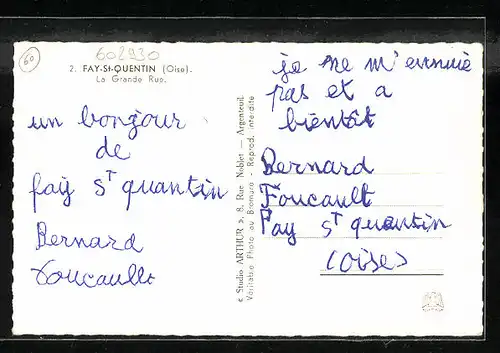 60
602930
2. FAY-St-QUENTIN (Oise).
La Grande Rue.
un bonjour
de
fay sT quantin
Bernard
Foucault
« Studio ARTHUR », 8, Rue Noblet — Argenteuil
Véritable Photo au Bromure - Reprod. interdite
je ne m'ennuie
pas et a
bientôt
Bernard
Foucault
Fay sT quentin
(Oise)